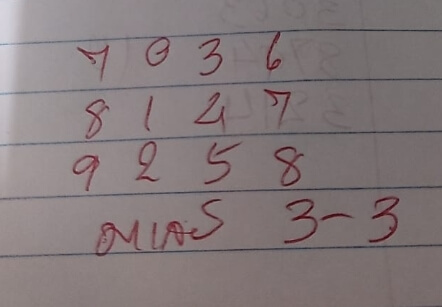 7 0 3 6
8 1 4 7
9 2 5 8
3-3